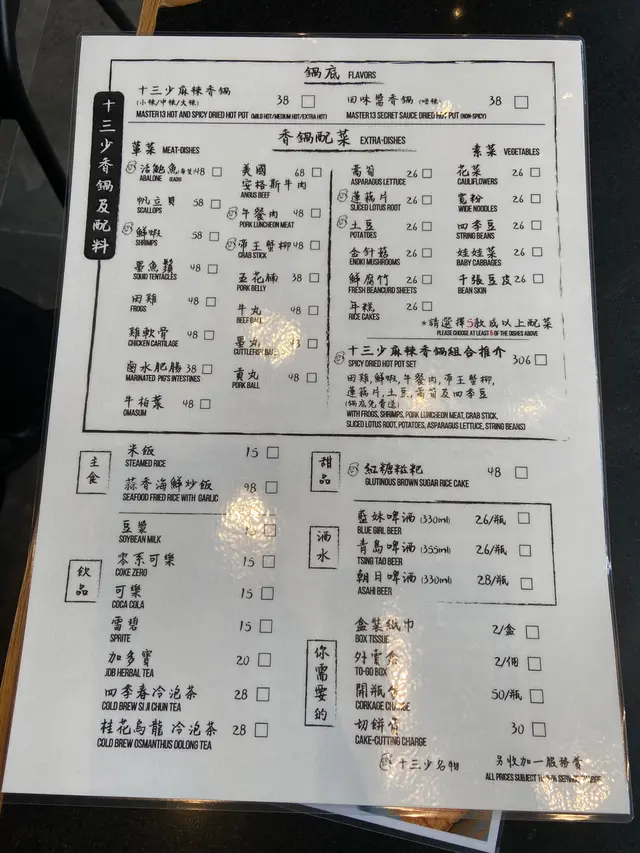 鍋底 FLAVORS
十三少麻辣香鍋
(小辣/中辣/大辣)
38
MASTER13 HOT AND SPICY DRIED HOT POT (MILD HOT/MEDIUM HOT/EXTRA HOT)
田味醬香鍋 (唔辣)
38
MASTER13 SECRET SAUCE DRIED HOT POT (NON-SPICY)
香鍋配菜 EXTRA-DISHES
十三少香鍋及配料
葷菜 MEAT-DISHES
活鮑魚 48
ABALONE (EACH)
帆立貝 58
SCALLOPS
鮮蝦 58
SHRIMPS
墨魚鬚 48
SQUID TENTACLES
田雞 48
FROGS
雞軟骨 48
CHICKEN CARTILAGE
鹵水肥腸 38
MARINATED PIG'S INTESTINES
牛柏葉 48
OMASUM
美國 68
安格斯牛肉
ANGUS BEEF
午餐肉 48
PORK LUNCHEON MEAT
帝王蟹柳 48
CRAB STICK
五花腩 38
PORK BELLY
牛丸 48
BEEF BALL
墨丸
CUTTLEFISH BALL
貢丸 48
PORK BALL
素菜 VEGETABLES
萵筍 26
ASPARAGUS LETTUCE
蓮藕片 26
SLICED LOTUS ROOT
土豆 26
POTATOES
金針菇 26
ENOKI MUSHROOMS
鮮腐竹 26
FRESH BEANCURD SHEETS
年糕 26
RICE CAKES
花菜 26
CAULIFLOWERS
寬粉 26
WIDE NOODLES
四季豆 26
STRING BEANS
娃娃菜 26
BABY CABBAGES
千張豆皮 26
BEAN SKIN
*請選擇5款或以上配菜
PLEASE CHOOSE AT LEAST 5 OF THE DISHES ABOVE
十三少麻辣香鍋組合推介 306
SPICY DRIED HOT POT SET
田雞,鮮蝦,午餐肉,帝王蟹柳,
蓮藕片,土豆,萵筍及四季豆
(鍋底免費送)
WITH FROGS, SHRIMPS, PORK LUNCHEON MEAT, CRAB STICK,
SLICED LOTUS ROOT, POTATOES, ASPARAGUS LETTUCE, STRING BEANS)
主食
米飯 15
STEAMED RICE
蒜香海鮮炒飯 98
SEAFOOD FRIED RICE WITH GARLIC
甜品
紅糖糍粑 48
GLUTINOUS BROWN SUGAR RICE CAKE
飲品
豆漿
SOYBEAN MILK
零系可樂 15
COKE ZERO
可樂 15
COCA COLA
雪碧 15
SPRITE
加多寶 20
JDB HERBAL TEA
四季春冷泡茶 28
COLD BREW SI JI CHUN TEA
桂花烏龍冷泡茶 28
COLD BREW OSMANTHUS OOLONG TEA
酒水
藍妹啤酒 (330ml) 26/瓶
BLUE GIRL BEER
青島啤酒 (355ml) 26/瓶
TSING TAO BEER
朝日啤酒 (330ml) 28/瓶
ASAHI BEER
你需要的
盒裝紙巾 2/盒
BOX TISSUE
外賣盒 2/個
TO-GO BOX
開瓶 50/瓶
CORKAGE CHARGE
切餅 30
CAKE-CUTTING CHARGE
十三少名物
另收加一服務費
ALL PRICES SUBJECT TO SERVICE CHARGE